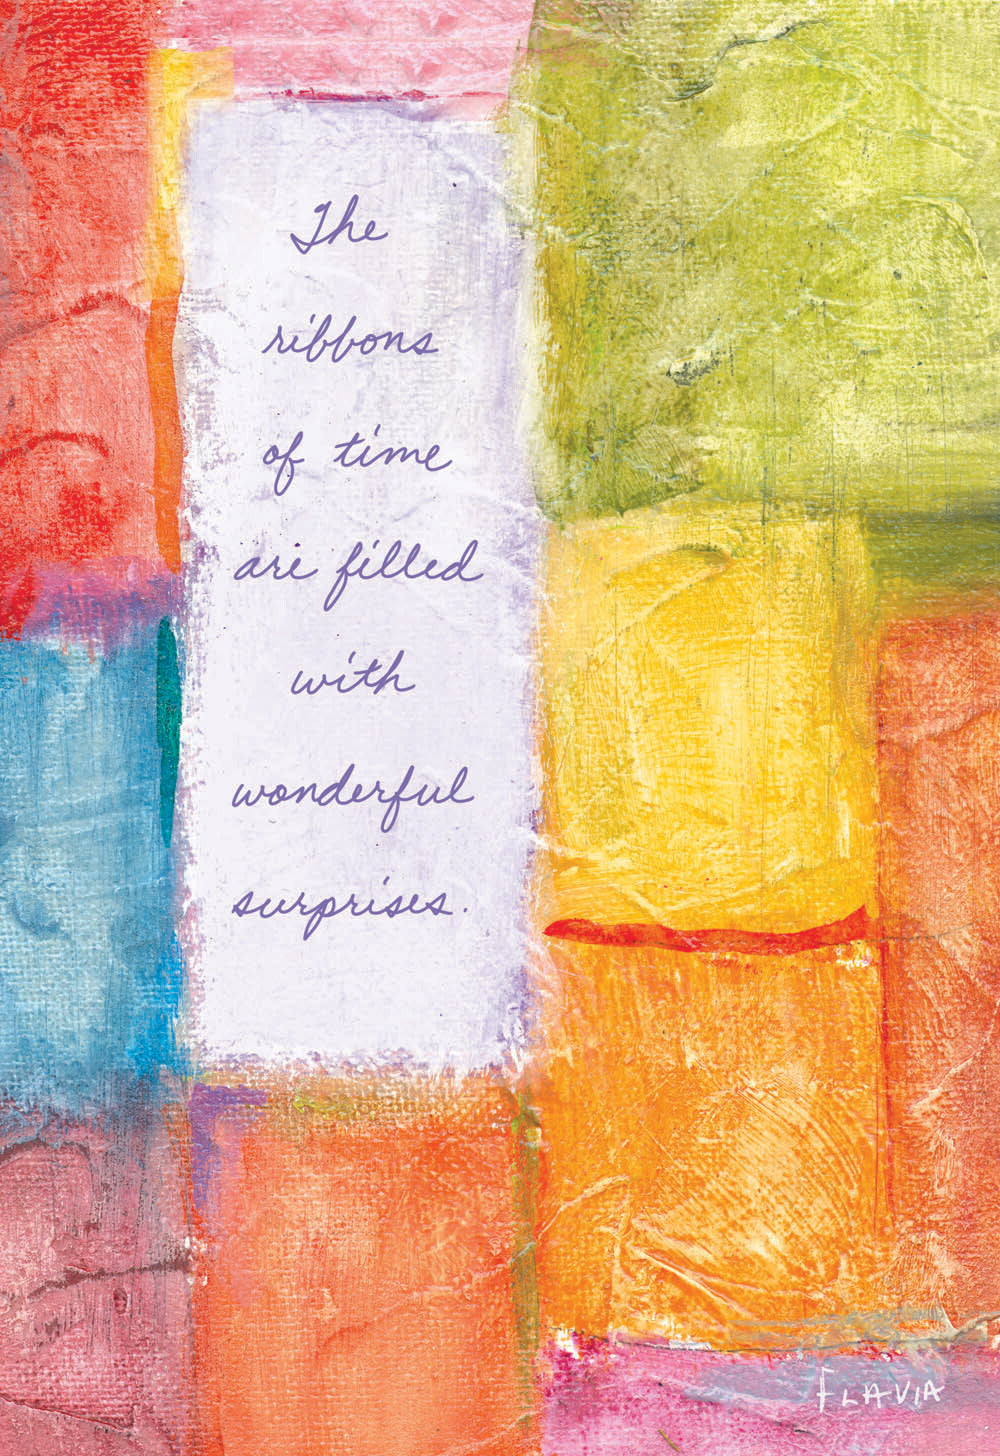 The
ribbons
of time
are filled
with
wonderful
surprises.
FLAVIA